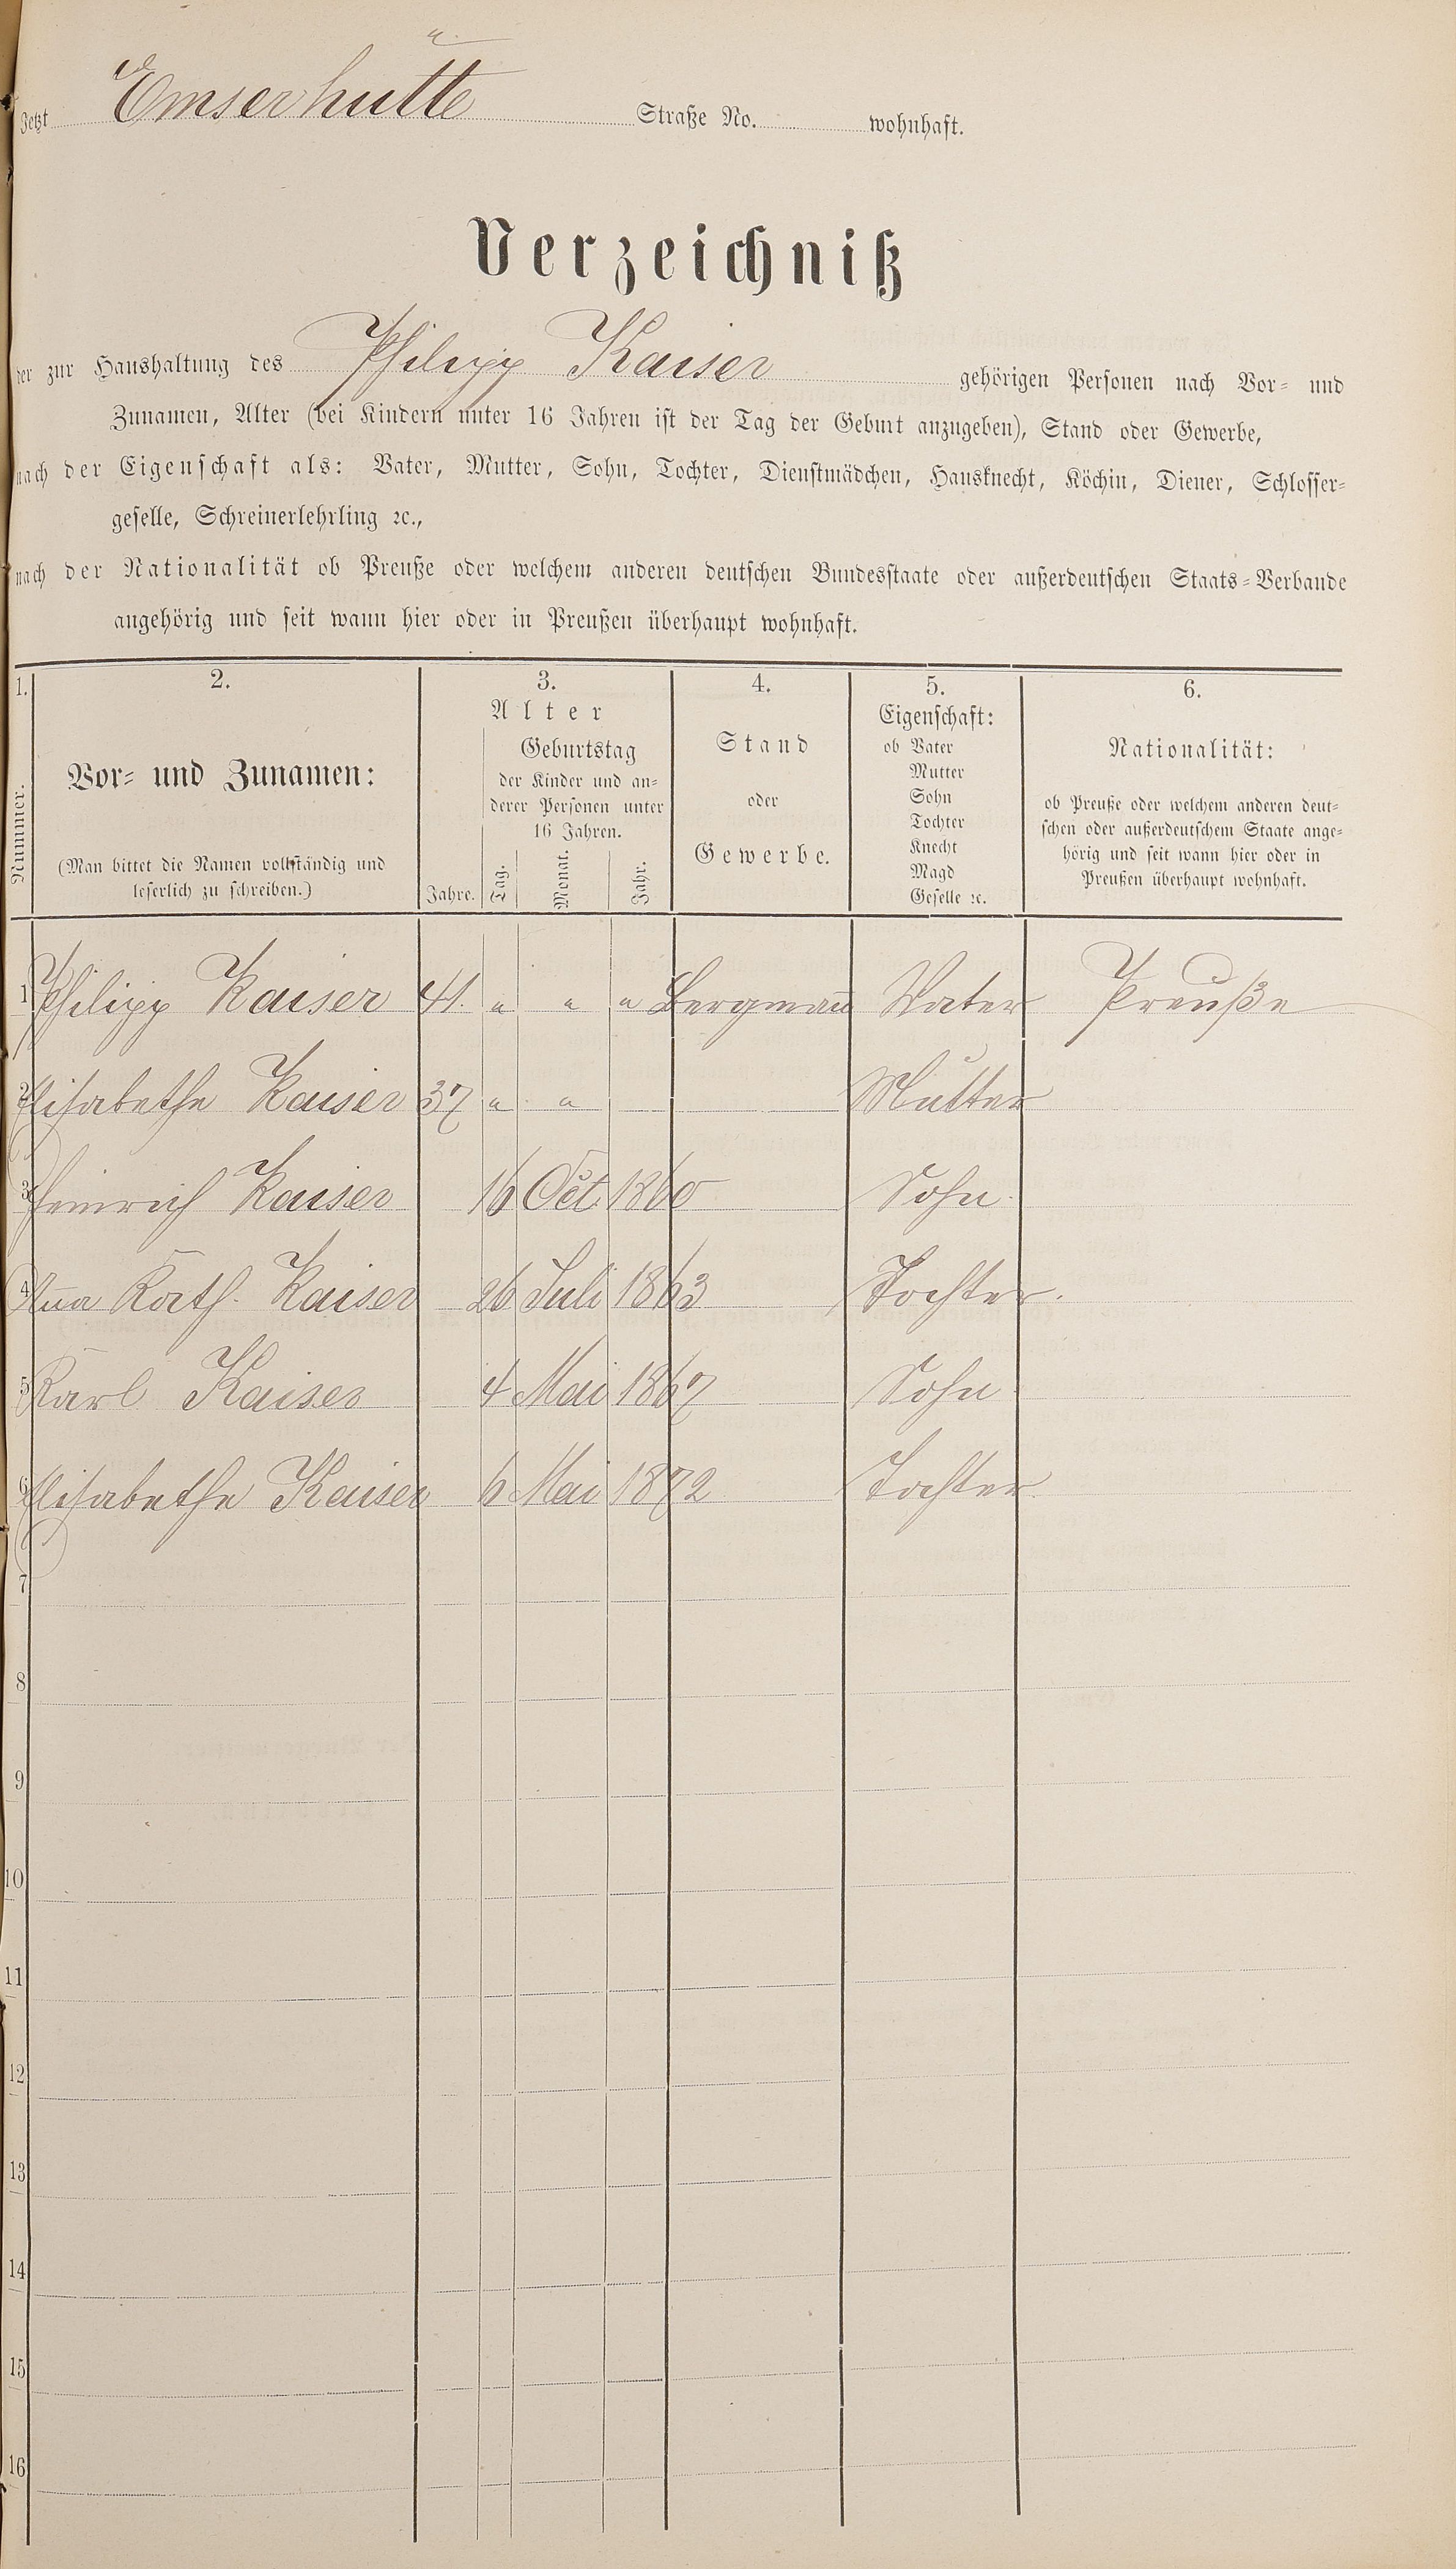 Jetzt Emserhütte Straße No. wohnhaft.
Verzeichniß
der zur Haushaltung des Philipp Kaiser gehörigen Personen nach Vor- und
Zunamen, Alter (bei Kindern unter 16 Jahren ist der Tag der Geburt anzugeben), Stand oder Gewerbe,
nach der Eigenschaft als: Vater, Mutter, Sohn, Tochter, Dienstmädchen, Hausknecht, Köchin, Diener, Schlosser-
geselle, Schreinerlehrling ꝛc.,
nach der Nationalität ob Preuße oder welchem anderen deutschen Bundesstaate oder außerdeutschen Staats-Verbande
angehörig und seit wann hier oder in Preußen überhaupt wohnhaft.
1.
Nummer.
2.
Vor- und Zunamen:
(Man bittet die Namen vollständig und
leserlich zu schreiben.)
3.
Alter
Jahre.
Geburtstag
der Kinder und an-
derer Personen unter
16 Jahren.
Tag.
Monat.
Jahr.
4.
Stand
oder
Gewerbe.
5.
Eigenschaft:
ob Vater
Mutter
Sohn
Tochter
Knecht
Magd
Geselle ꝛc.
6.
Nationalität:
ob Preuße oder welchem anderen deut-
schen oder außerdeutschem Staate ange-
hörig und seit wann hier oder in
Preußen überhaupt wohnhaft.
1 Philipp Kaiser 41. " " " Bergman̄ Vater Preuße
2 Elisabethe Kaiser 37 " " Mutter
3 Heinrich Kaiser 16 Oct. 1860 Sohn
4 An̄a Kath. Kaiser 26 Juli 1863 Tochter.
5 Karl Kaiser 4 Mai 1867 Sohn
6 Elisabethe Kaiser 6 Mai 1872 Tochter
7
8
9
10
11
12
13
14
15
16